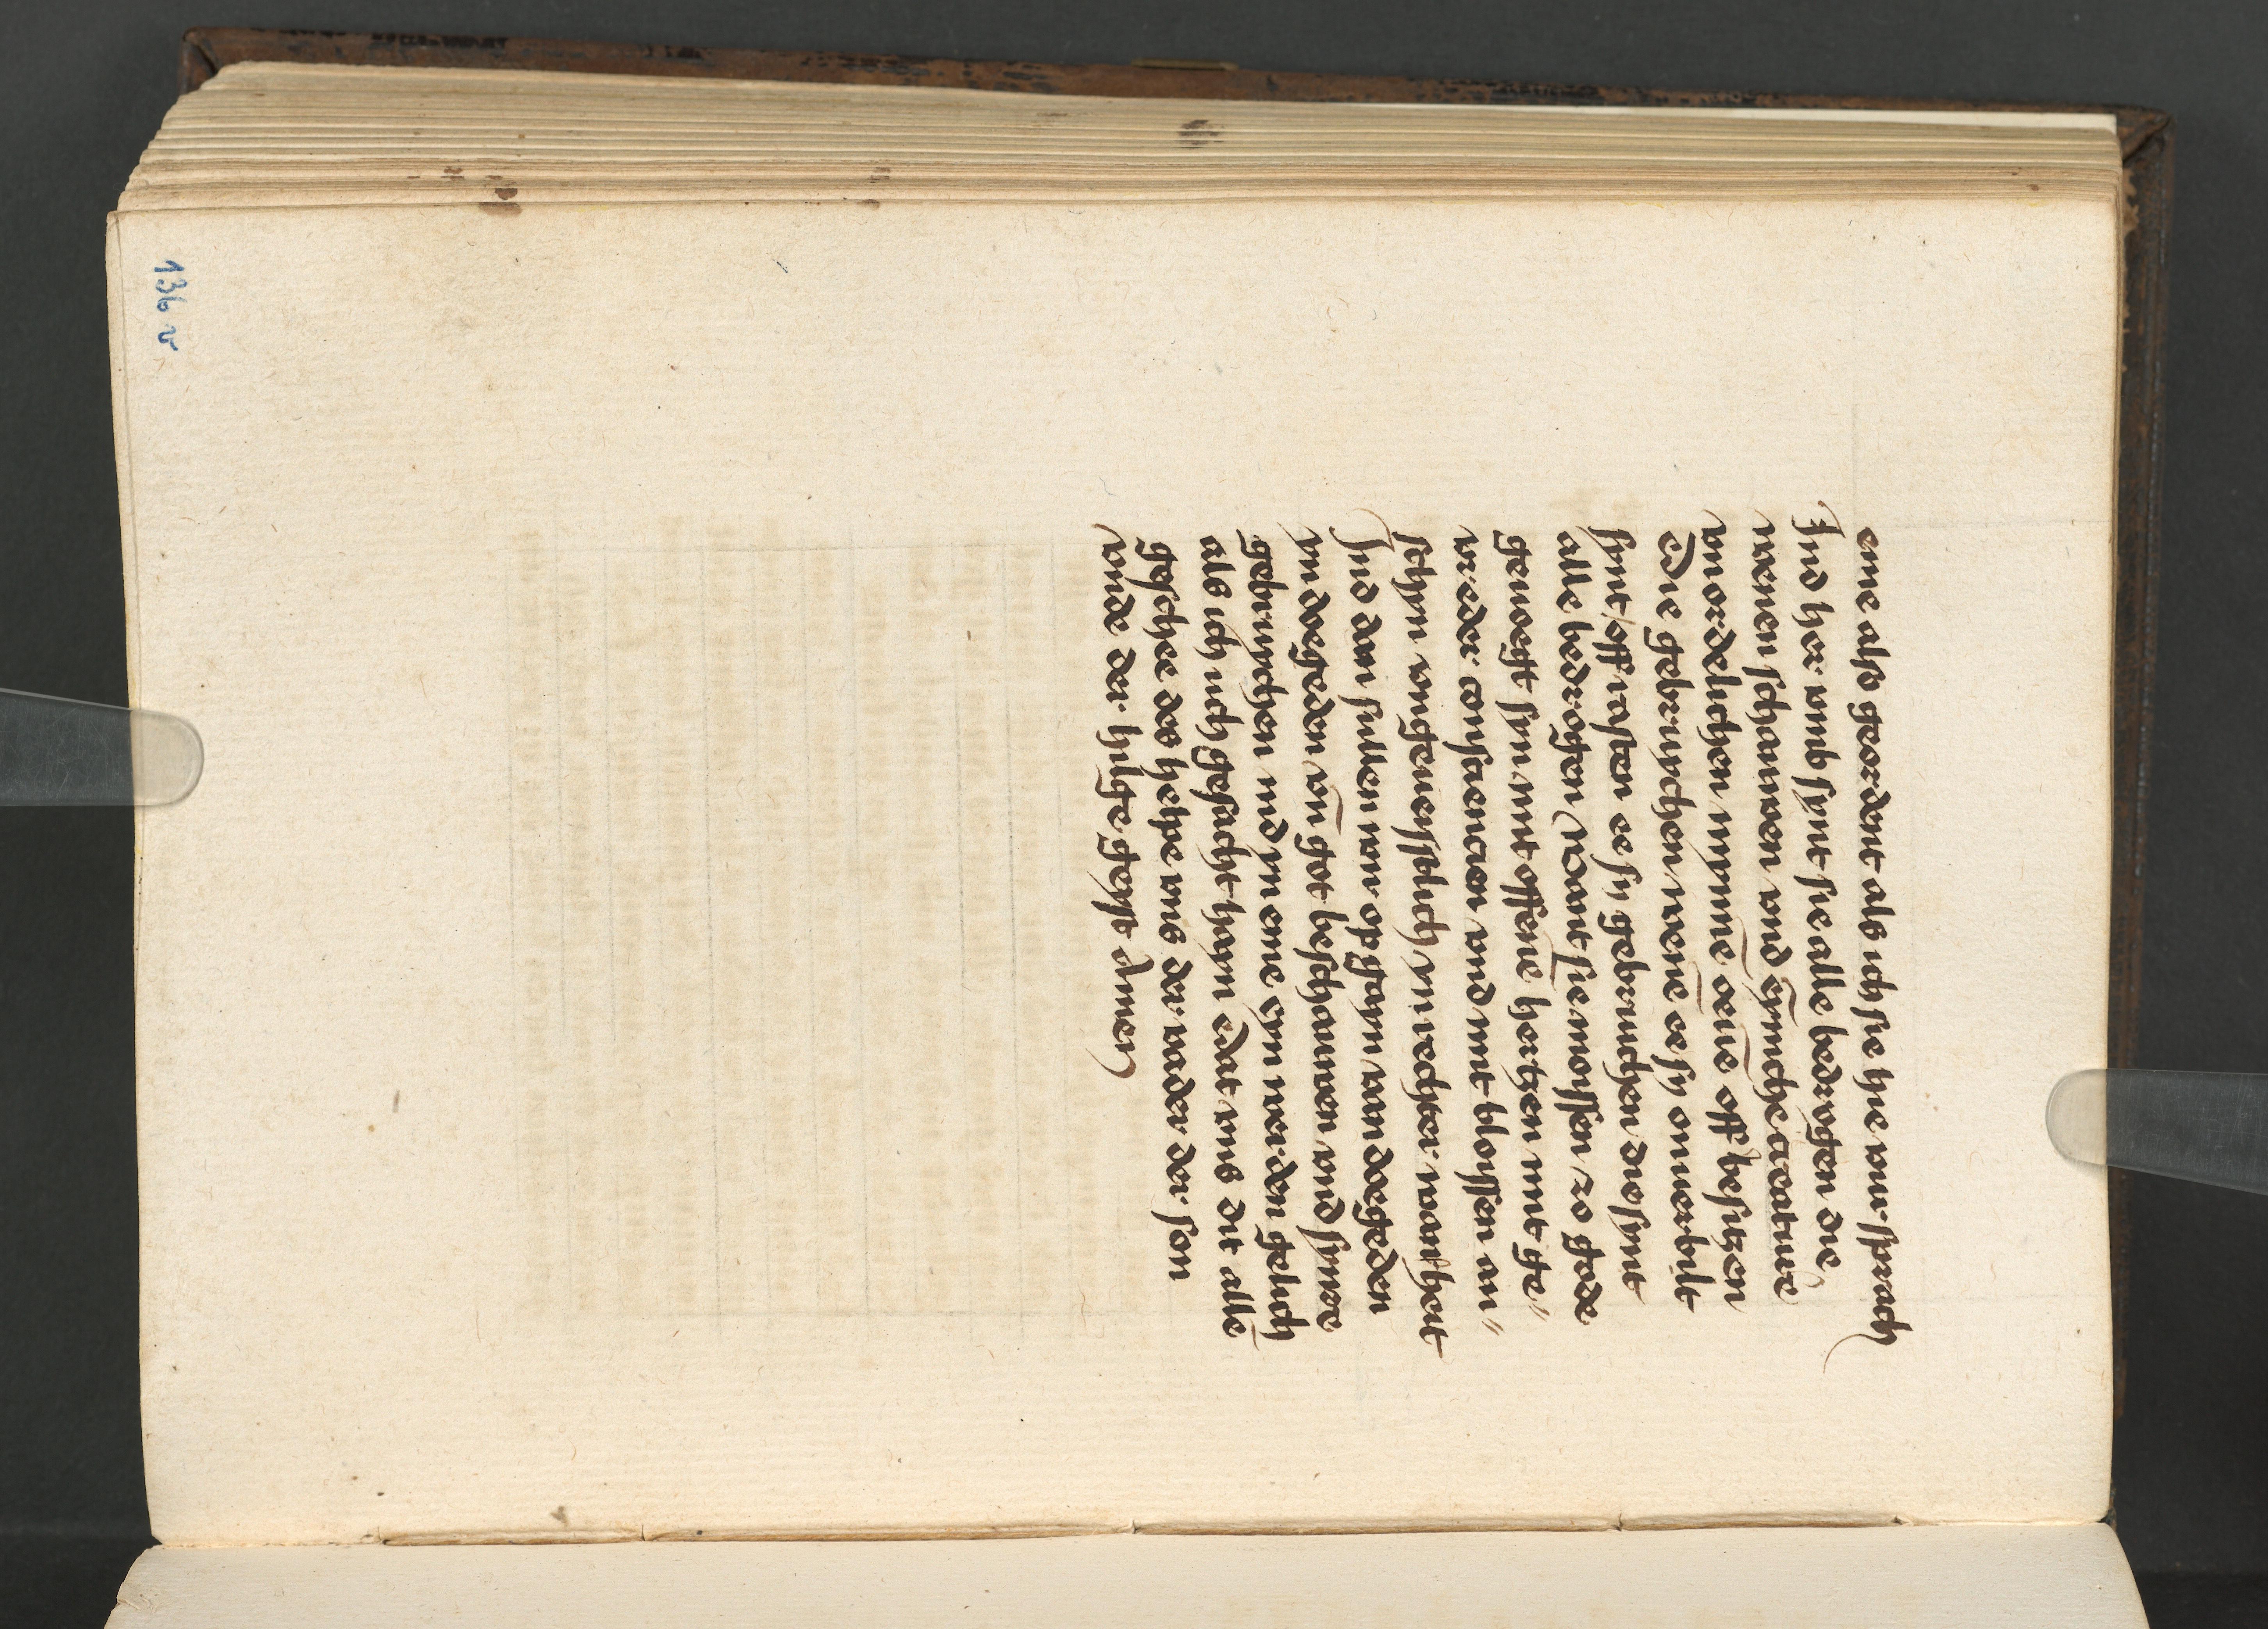 136 v
eme also geordent als ich sie hie vur sprach
Ind her vmb synt sie alle bedrogen die
wenen schauwen vnd eyniche creature
vnordelichen mynnē oenē off besitzen
Die gebruychen wenē ee sy onuerbilt
synt / off rasten ee sy gebruichen die synt
alle bedrogen Want sie moyssen zo gode
genoegt syn mit offenē hertzen mit ge"
vreder consciencien vnd mit bloyssen an"
schyn vngeueystlich yn rechter warheit
Ind dan sullen wir op gayn van doegeden
yn doegeden vn̄ got beschauwen vnd synre
gebruychen ind yn eme eyn werden gelich
als ich uch gesacht hayn Dat vns dit allē
geschee des helpe vns der vader der son
vnde der hilge geyst Amen